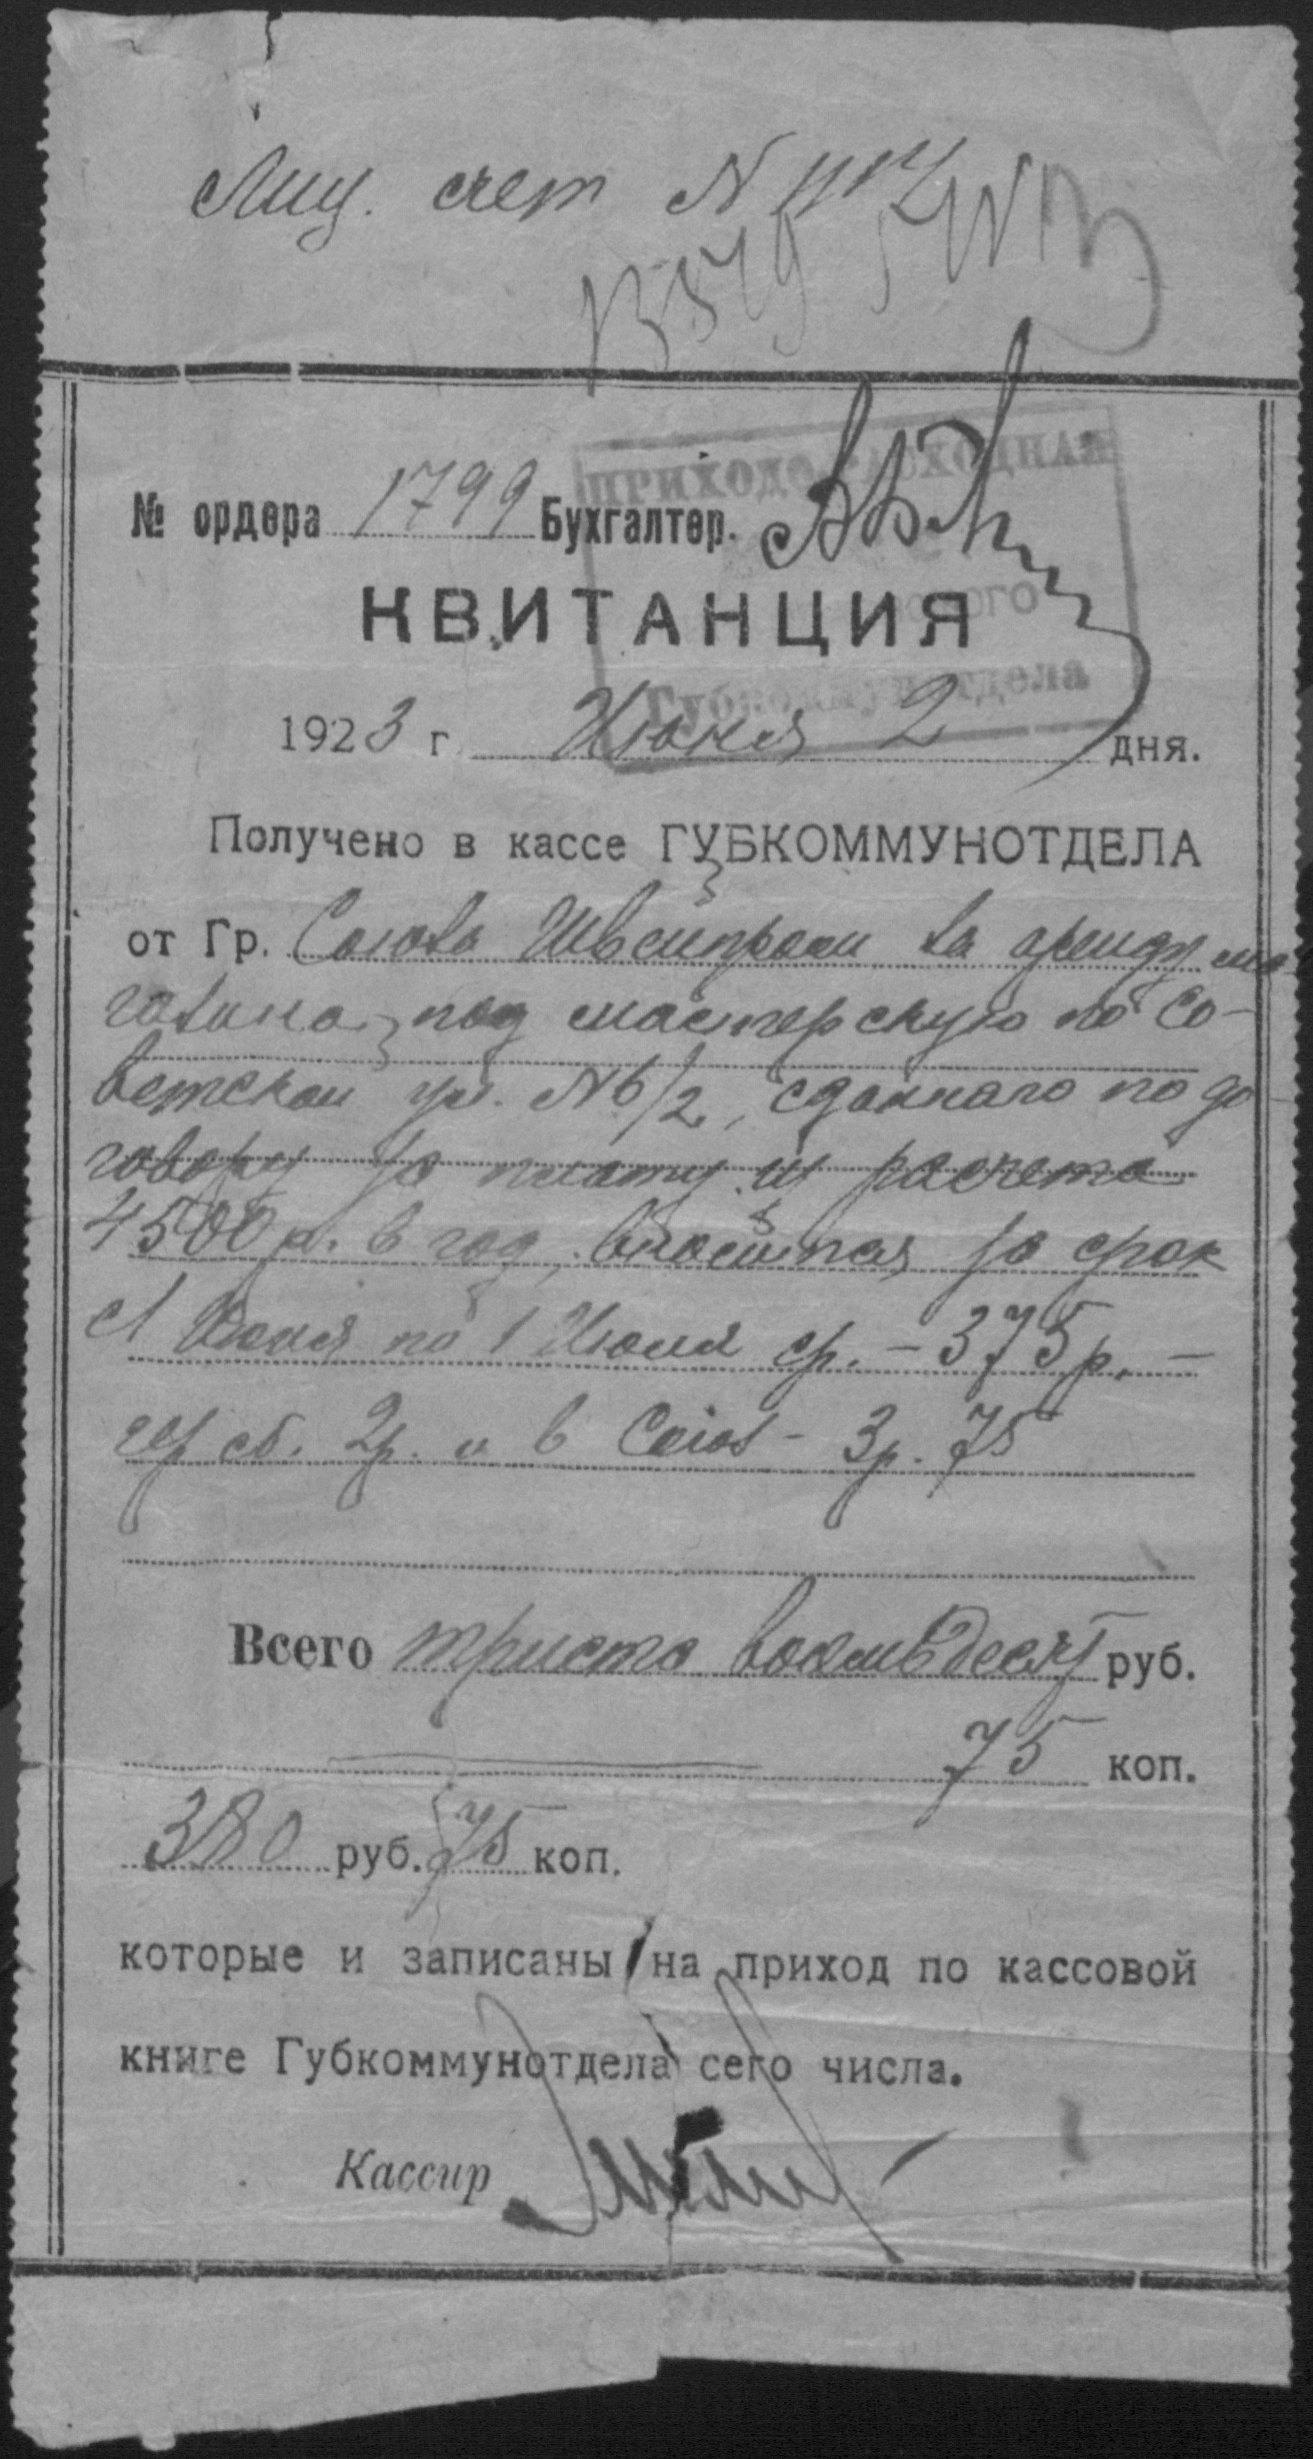 Лиц. счет N
13549
№ ордера 1799 Бухгалтер.
ПРИХОДО-РАСХОДНАЯ
Губкоммунотдела
КВИТАНЦИЯ
1923 г. Июня 2 дня.
Получено в кассе ГУБКОММУНОТДЕЛА
от Гр. Союза Швейпром за аренду ма-
газина под мастерскую по Со-
ветской ул. №6/2, сданнаго по до-
говору за плату из расчета
4500 р. в год, вносится за срок
с 1 Июня по 1 Июля ср. - 375 р. -
гер сб. 2р. и в Союз - 3р. 75
Всего триста восемьдесят руб.
75 коп.
380 руб. 75 коп.
которые и записаны на приход по кассовой
книге Губкоммунотдела сего числа.
Кассир